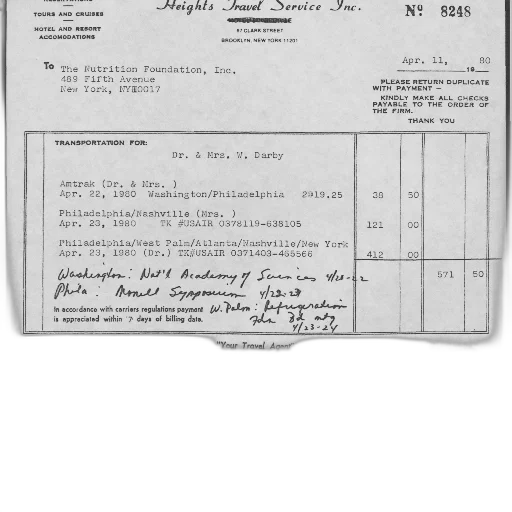 Heights Travel Service Inc.
Nº 8248
TOURS AND CRUISES
HOTEL AND RESORT
ACCOMODATIONS
57 CLARK STREET
BROOKLYN, NEW YORK 11201
Apr. 11, 19 80
To The Nutrition Foundation, Inc.
489 Fifth Avenue
New York, NY 10017
PLEASE RETURN DUPLICATE
WITH PAYMENT —
KINDLY MAKE ALL CHECKS
PAYABLE TO THE ORDER OF
THE FIRM.
THANK YOU
TRANSPORTATION FOR:
Dr. & Mrs. W. Darby
Amtrak (Dr. & Mrs. )
Apr. 22, 1980 Washington/Philadelphia 2@19.25 38 50
Philadelphia/Nashville (Mrs. )
Apr. 23, 1980 TK #USAIR 0378119-638105 121 00
Philadelphia/West Palm/Atlanta/Nashville/New York
Apr. 23, 1980 (Dr.) TK#USAIR 0371403-465566 412 00
571 50
Washington: Nat'l Academy of Sciences 4/20-22
Phila: Monell Symposium 4/22-23
W. Palm: Refrigeration
Fdn Bd mtg
4/23-24
In accordance with carriers regulations payment
is appreciated within 7 days of billing date.
"Your Travel Agent"